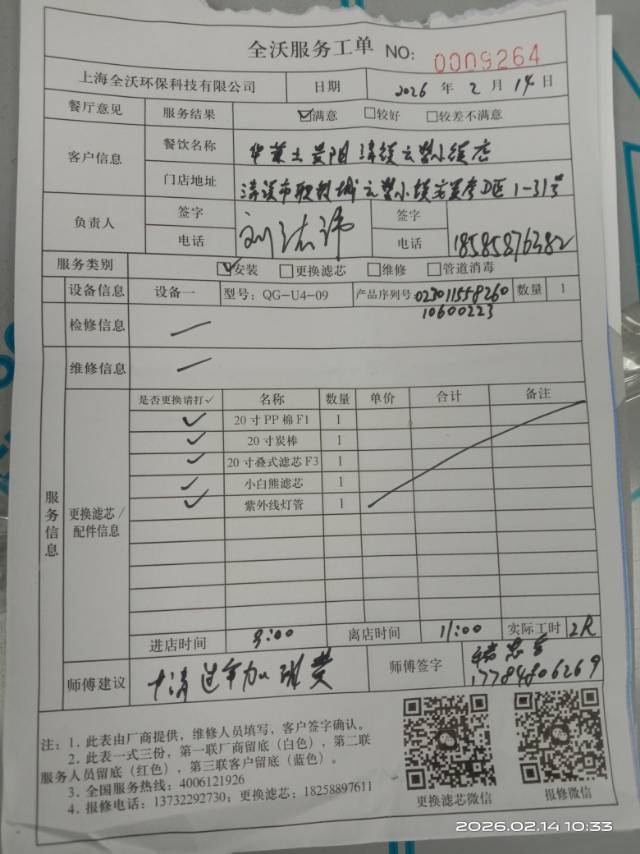 全沃服务工单 NO: 0009264
上海全沃环保科技有限公司 日期 2026 年 2 月 14 日
餐厅意见 服务结果 ☑满意 □较好 □较差不满意
客户信息 餐饮名称 华莱士贵阳清镇云盘小镇店
门店地址 清镇市职教城云盘小镇 D区1-31号
负责人 签字 签字
电话 电话 18585876382
服务类别 ☑安装 □更换滤芯 □维修 □管道消毒
设备信息 设备一 型号: QG-U4-09 产品序列号: 023011558260 数量 1
10600223
检修信息
维修信息
是否更换请打✓ 名称 数量 单价 合计 备注
✓ 20寸PP棉F1 1
✓ 20寸炭棒 1
✓ 20寸叠式滤芯F3 1
✓ 小白熊滤芯 1
✓ 紫外线灯管 1
服务信息
更换滤芯/
配件信息
进店时间 9:00 离店时间 11:00 实际工时 2R
师傅建议 申请过年加班费 师傅签字
17784806269
注: 1. 此表由厂商提供, 维修人员填写, 客户签字确认。
2. 此表一式三份, 第一联厂商留底(白色), 第二联
服务人员留底(红色), 第三联客户留底(蓝色)。
3. 全国服务热线: 4006121926
4. 报修电话: 13732292730; 更换滤芯: 18258897611
更换滤芯微信 报修微信
2026.02.14 10:33